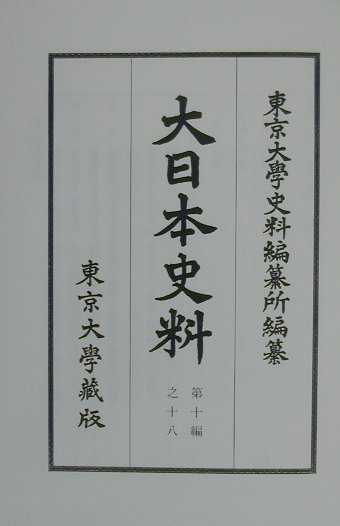 東京大學史料編纂所編纂
大日本史料
第十編
之十八
東京大學藏版